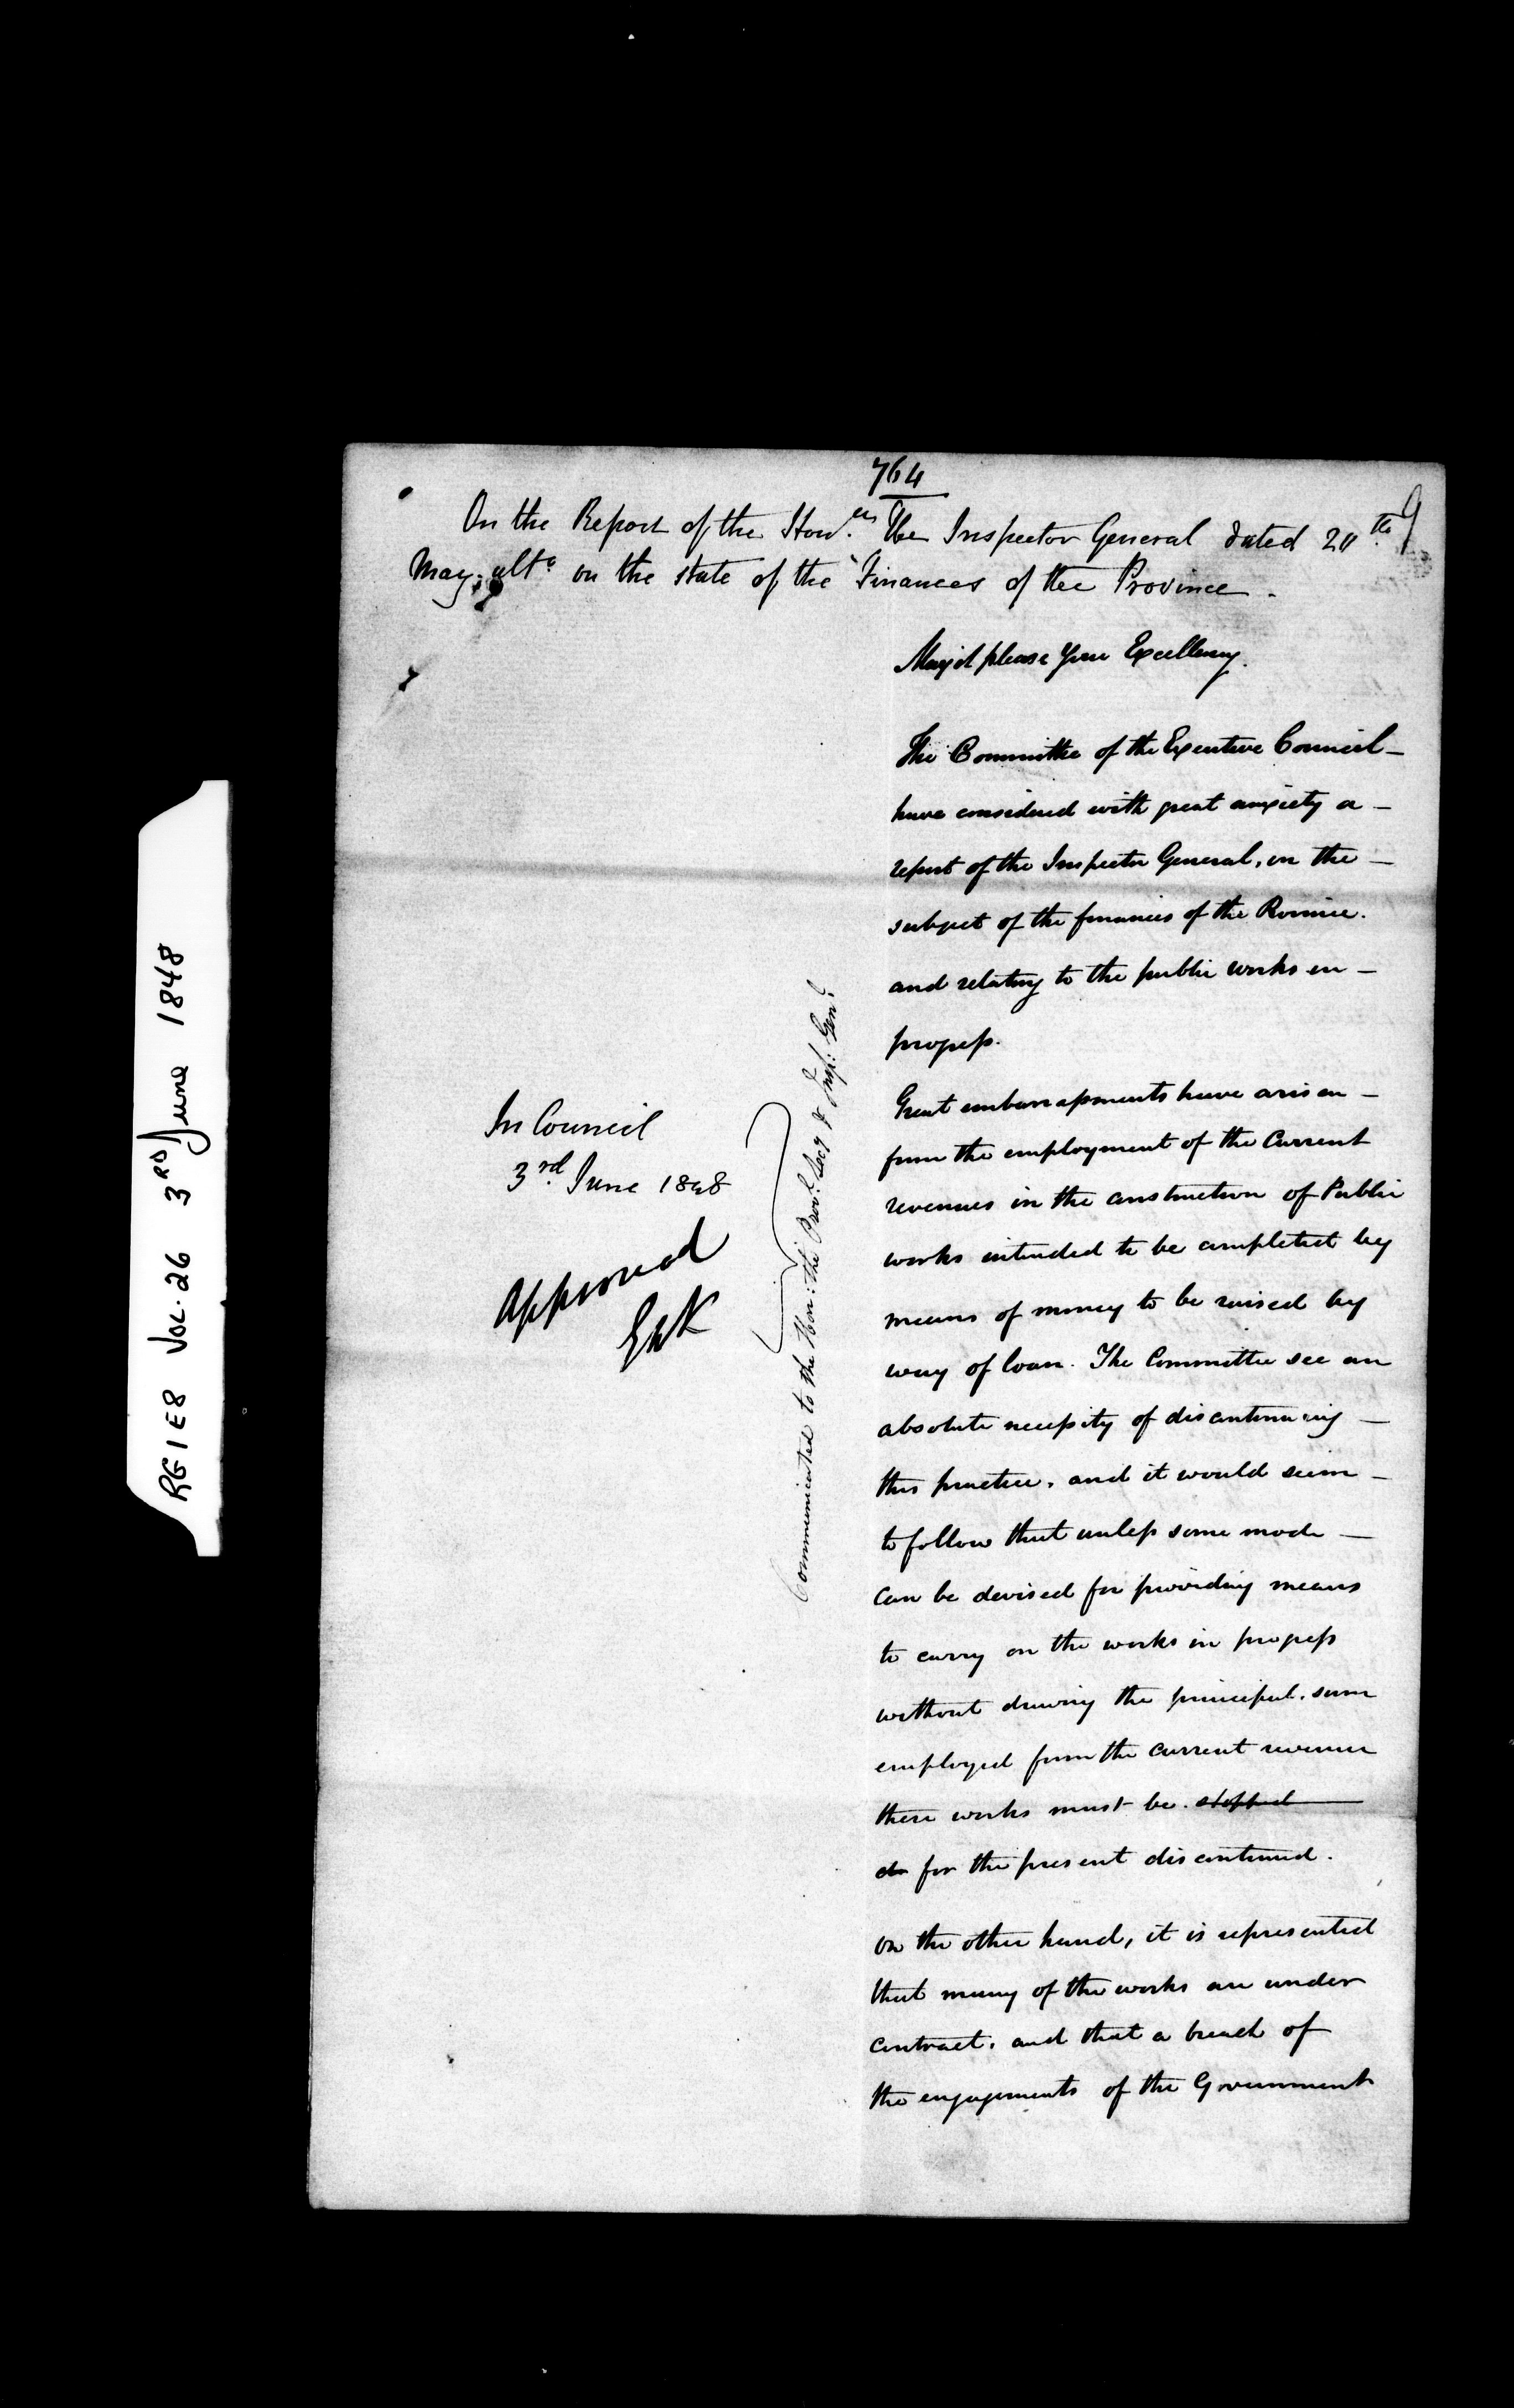 RG1E8 Vol. 26 3RD June 1848
764
On the Report of the Hon.ble The Inspector General dated th
May ulto on the state of the Finances of the Province.
May it please Your Excellency.
The Committee of the Executive Council
have considered with great anxiety a
report of the Inspector General, on the
subject of the finances of the Province.
and relating to the public works in
progress.
Great embarrassments have arisen
from the employment of the Current
revenues in the construction of Public
works intended to be completed by
means of money to be raised by
way of loan. The Committee see an
absolute necessity of discontinuing
this practice, and it would seem
to follow that unless some mode
can be devised for providing means
to carry on the works in progress
without drawing the principal sum
employed from the current revenue
these works must be stopped
for the present discontinued.
On the other hand, it is represented
that many of the works are under
contract, and that a breach of
the engagements of the Government
In Council
3rd June 1848
Approved
Communicated to the Hon: the Provl Secy & Insp: Genl